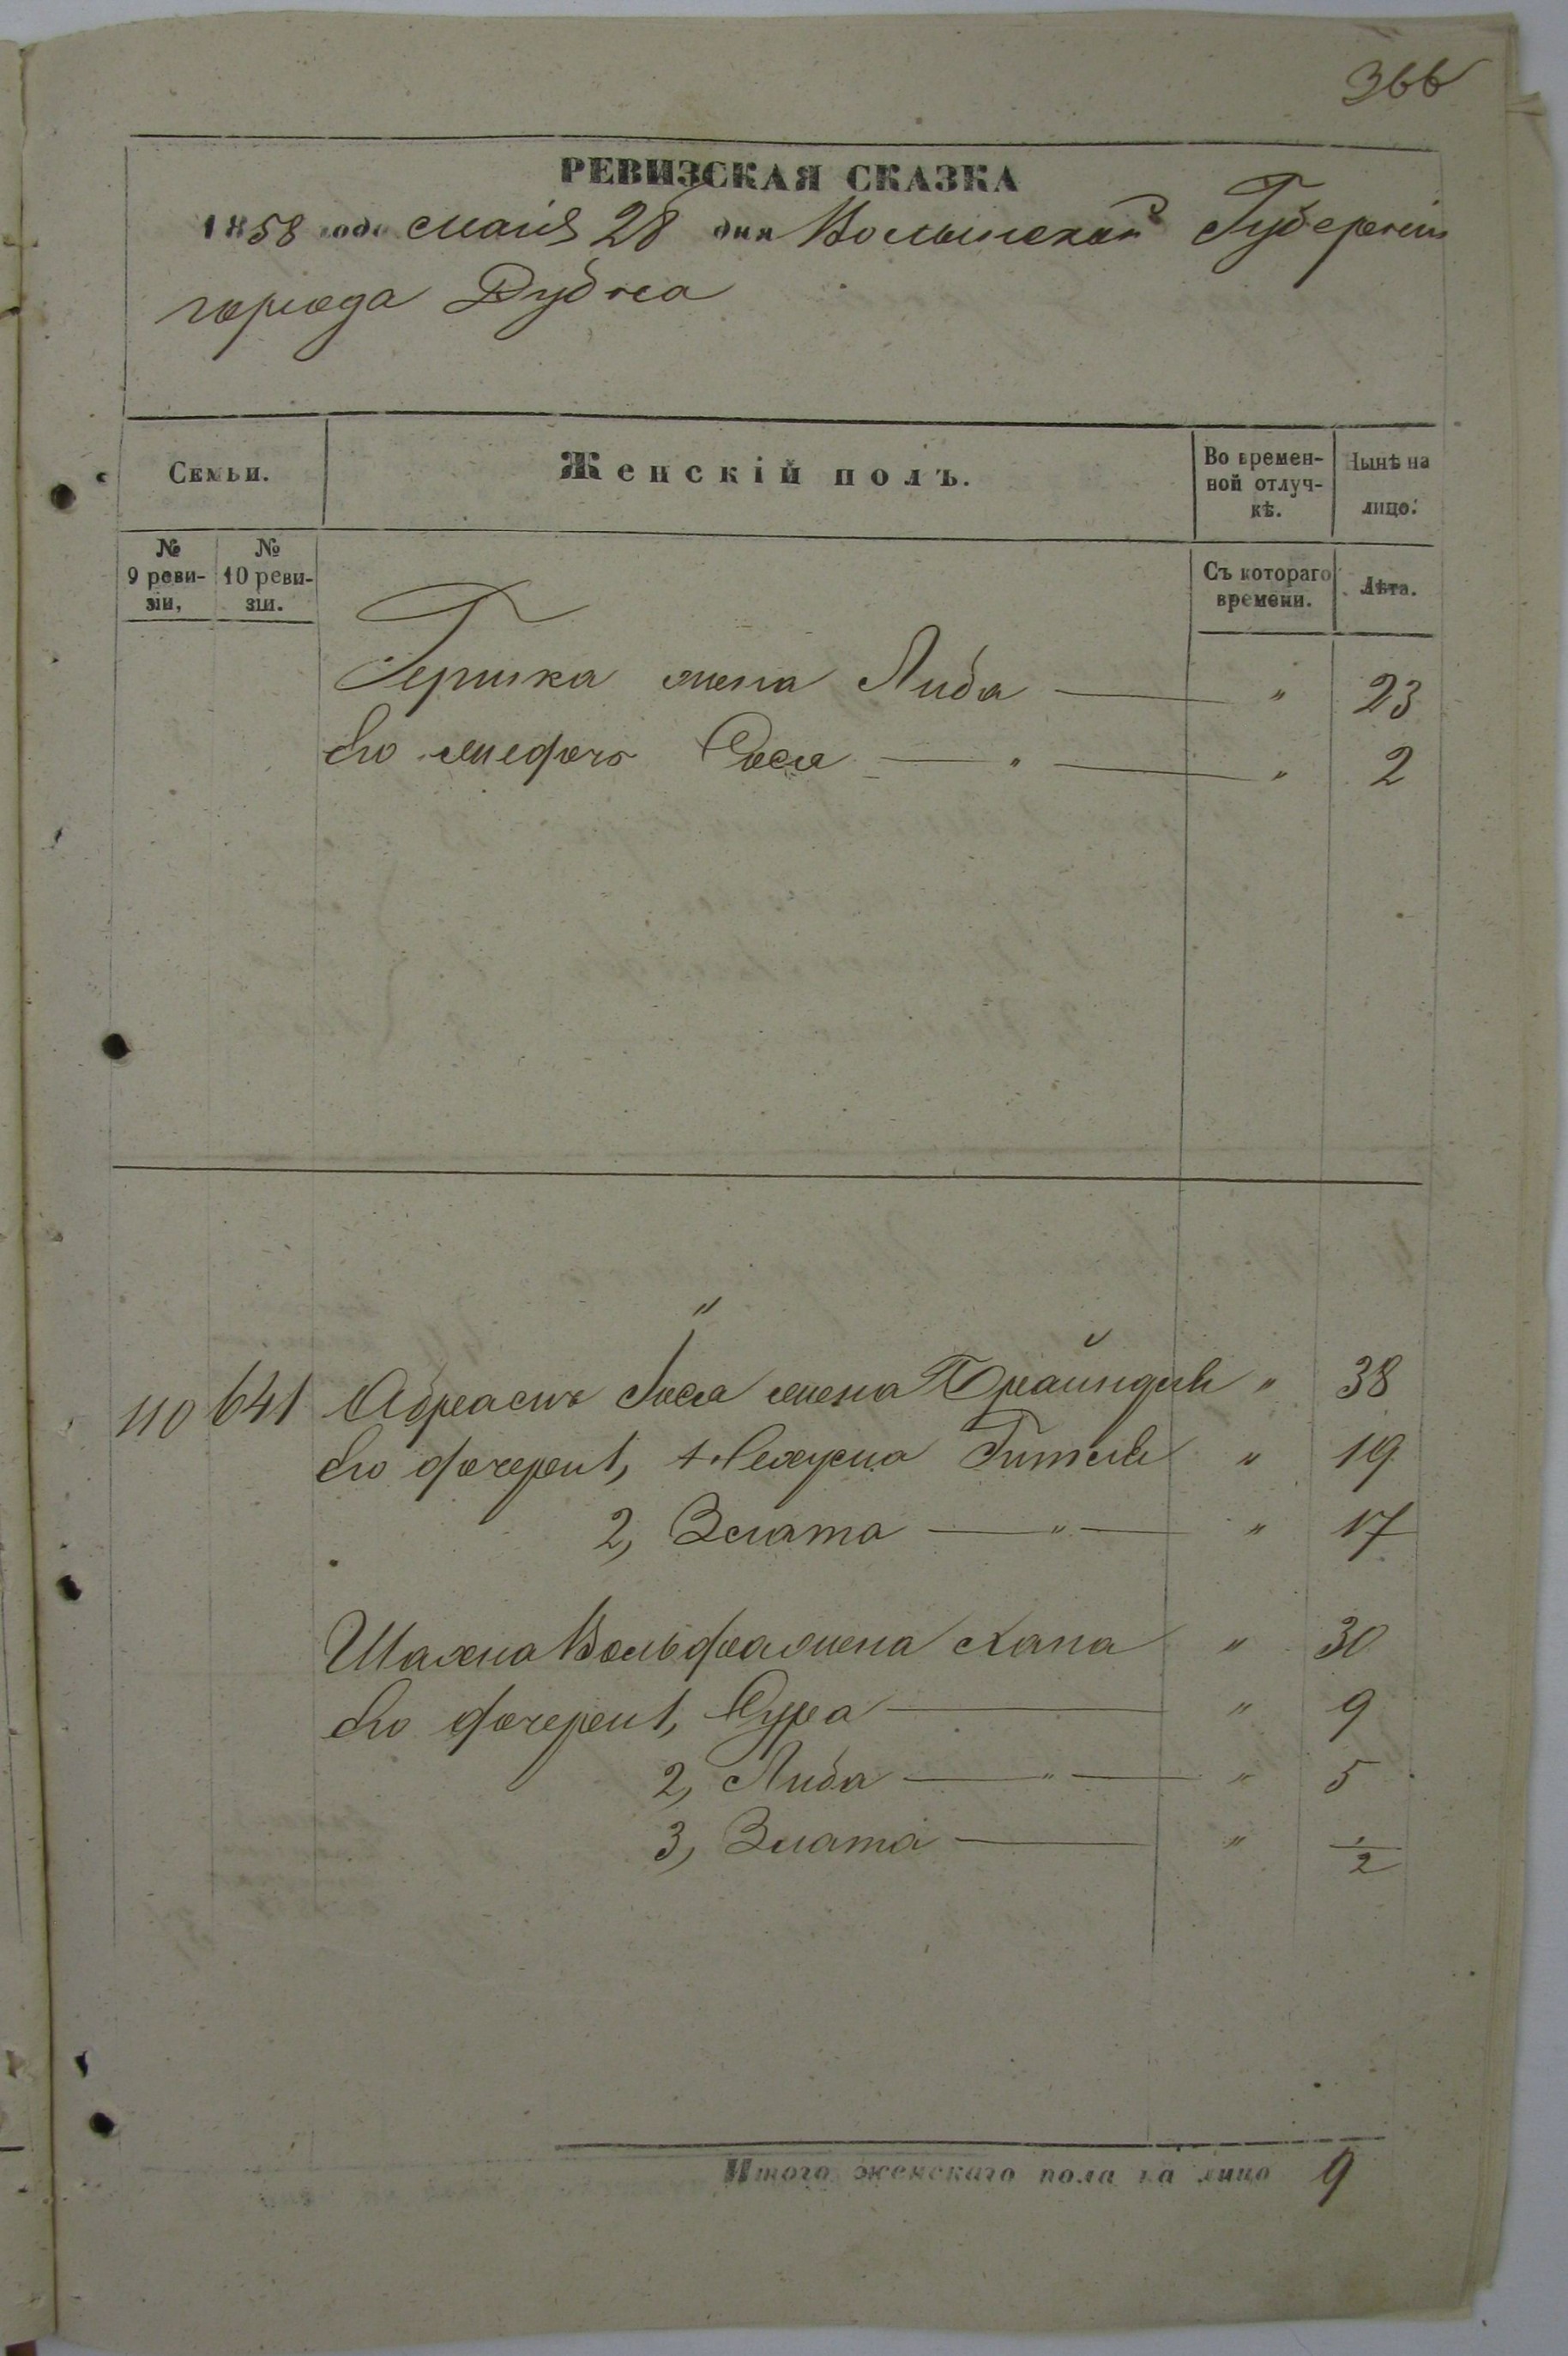 366
РЕВИЗСКАЯ СКАЗКА
1858 года маія 28 дня Волынской Губерніи
города Дубна
Семьи.
Женскій полъ.
Во времен-
ной отлуч-
кѣ.
Нынѣ на
лицо.
№
9 реви-
зіи,
№
10 реви-
зіи.
Съ котораго
времени.
Лѣта.
Гершка жена Либа — " 23
Его дочь — " — " 2
"
110 641 Абрамъ жена Брайндля " 38
Его дочери 1, Нехума Гитля " 19
2, Злата — " — " 17
Шахна Вольфа жена Хана " 30
Его дочери 1, Сура — " 9
2, Либа — " — " 5
3, Злата — " 1/2
Итого женскаго пола на лицо 9